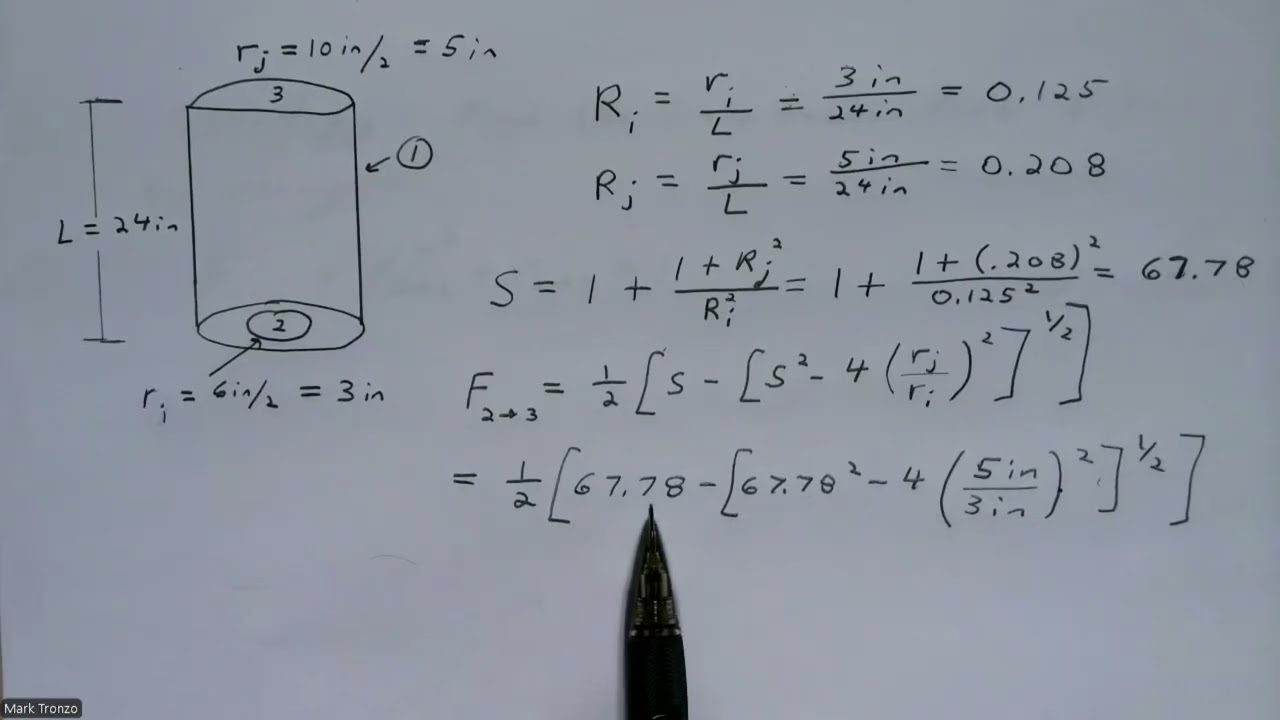 r_j = 10in/2 = 5in
3
1
L = 24in
2
r_i = 6in/2 = 3in
R_i = r_i/L = 3in/24in = 0.125
R_j = r_j/L = 5in/24in = 0.208
S = 1 + (1 + R_j²)/R_i² = 1 + (1 + (.208)²)/0.125² = 67.78
F_2→3 = 1/2 [S - [S² - 4 (r_j/r_i)²]^1/2]
= 1/2 [67.78 - [67.78² - 4 (5in/3in)²]^1/2]
Mark Tronzo